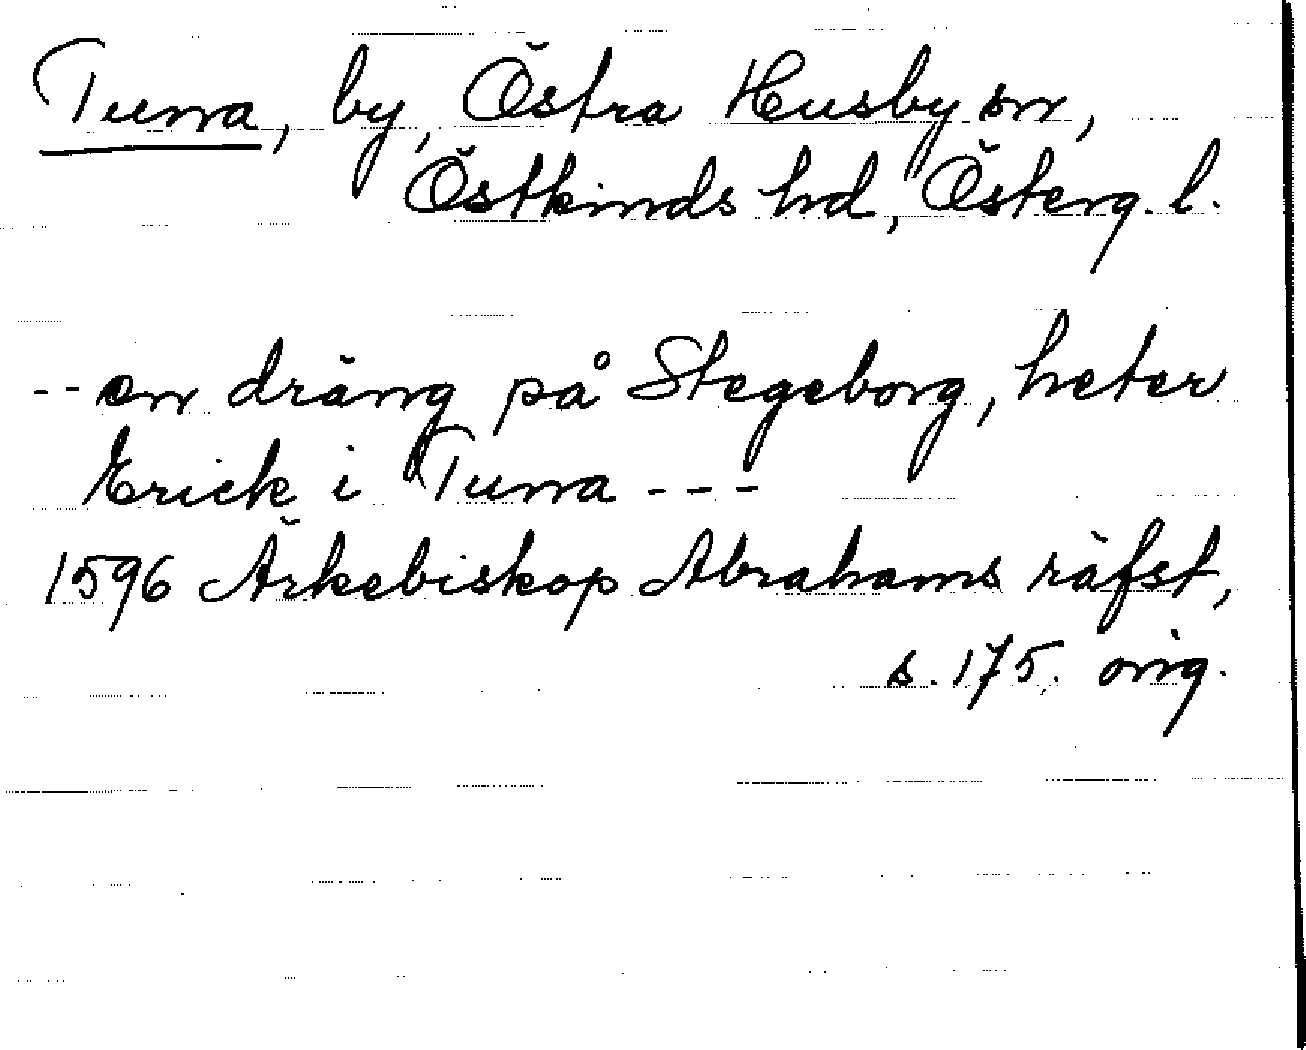 Tuna, by, Östra Husby sn,
Östkinds hd, Österg. l.
-- en dräng på Stegeborg, heter
Erick i Tuna ---
1596 Ärkebiskop Abrahams räfst,
s. 175. orig.